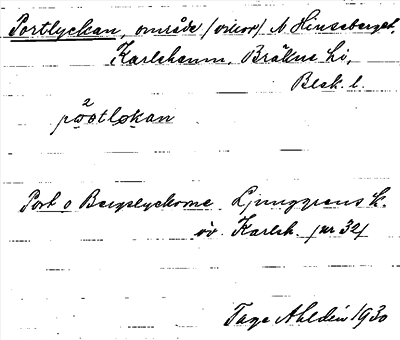 Portlyckan, område /villor/ N Hinseberget,
Karlshamn, Bräkne hd,
Blek. l.
2
pootlokan
Port o Bergslyckorna Ljunggrens k.
öv. Karlsh. /nr 32/
Tage Ahldén 1930